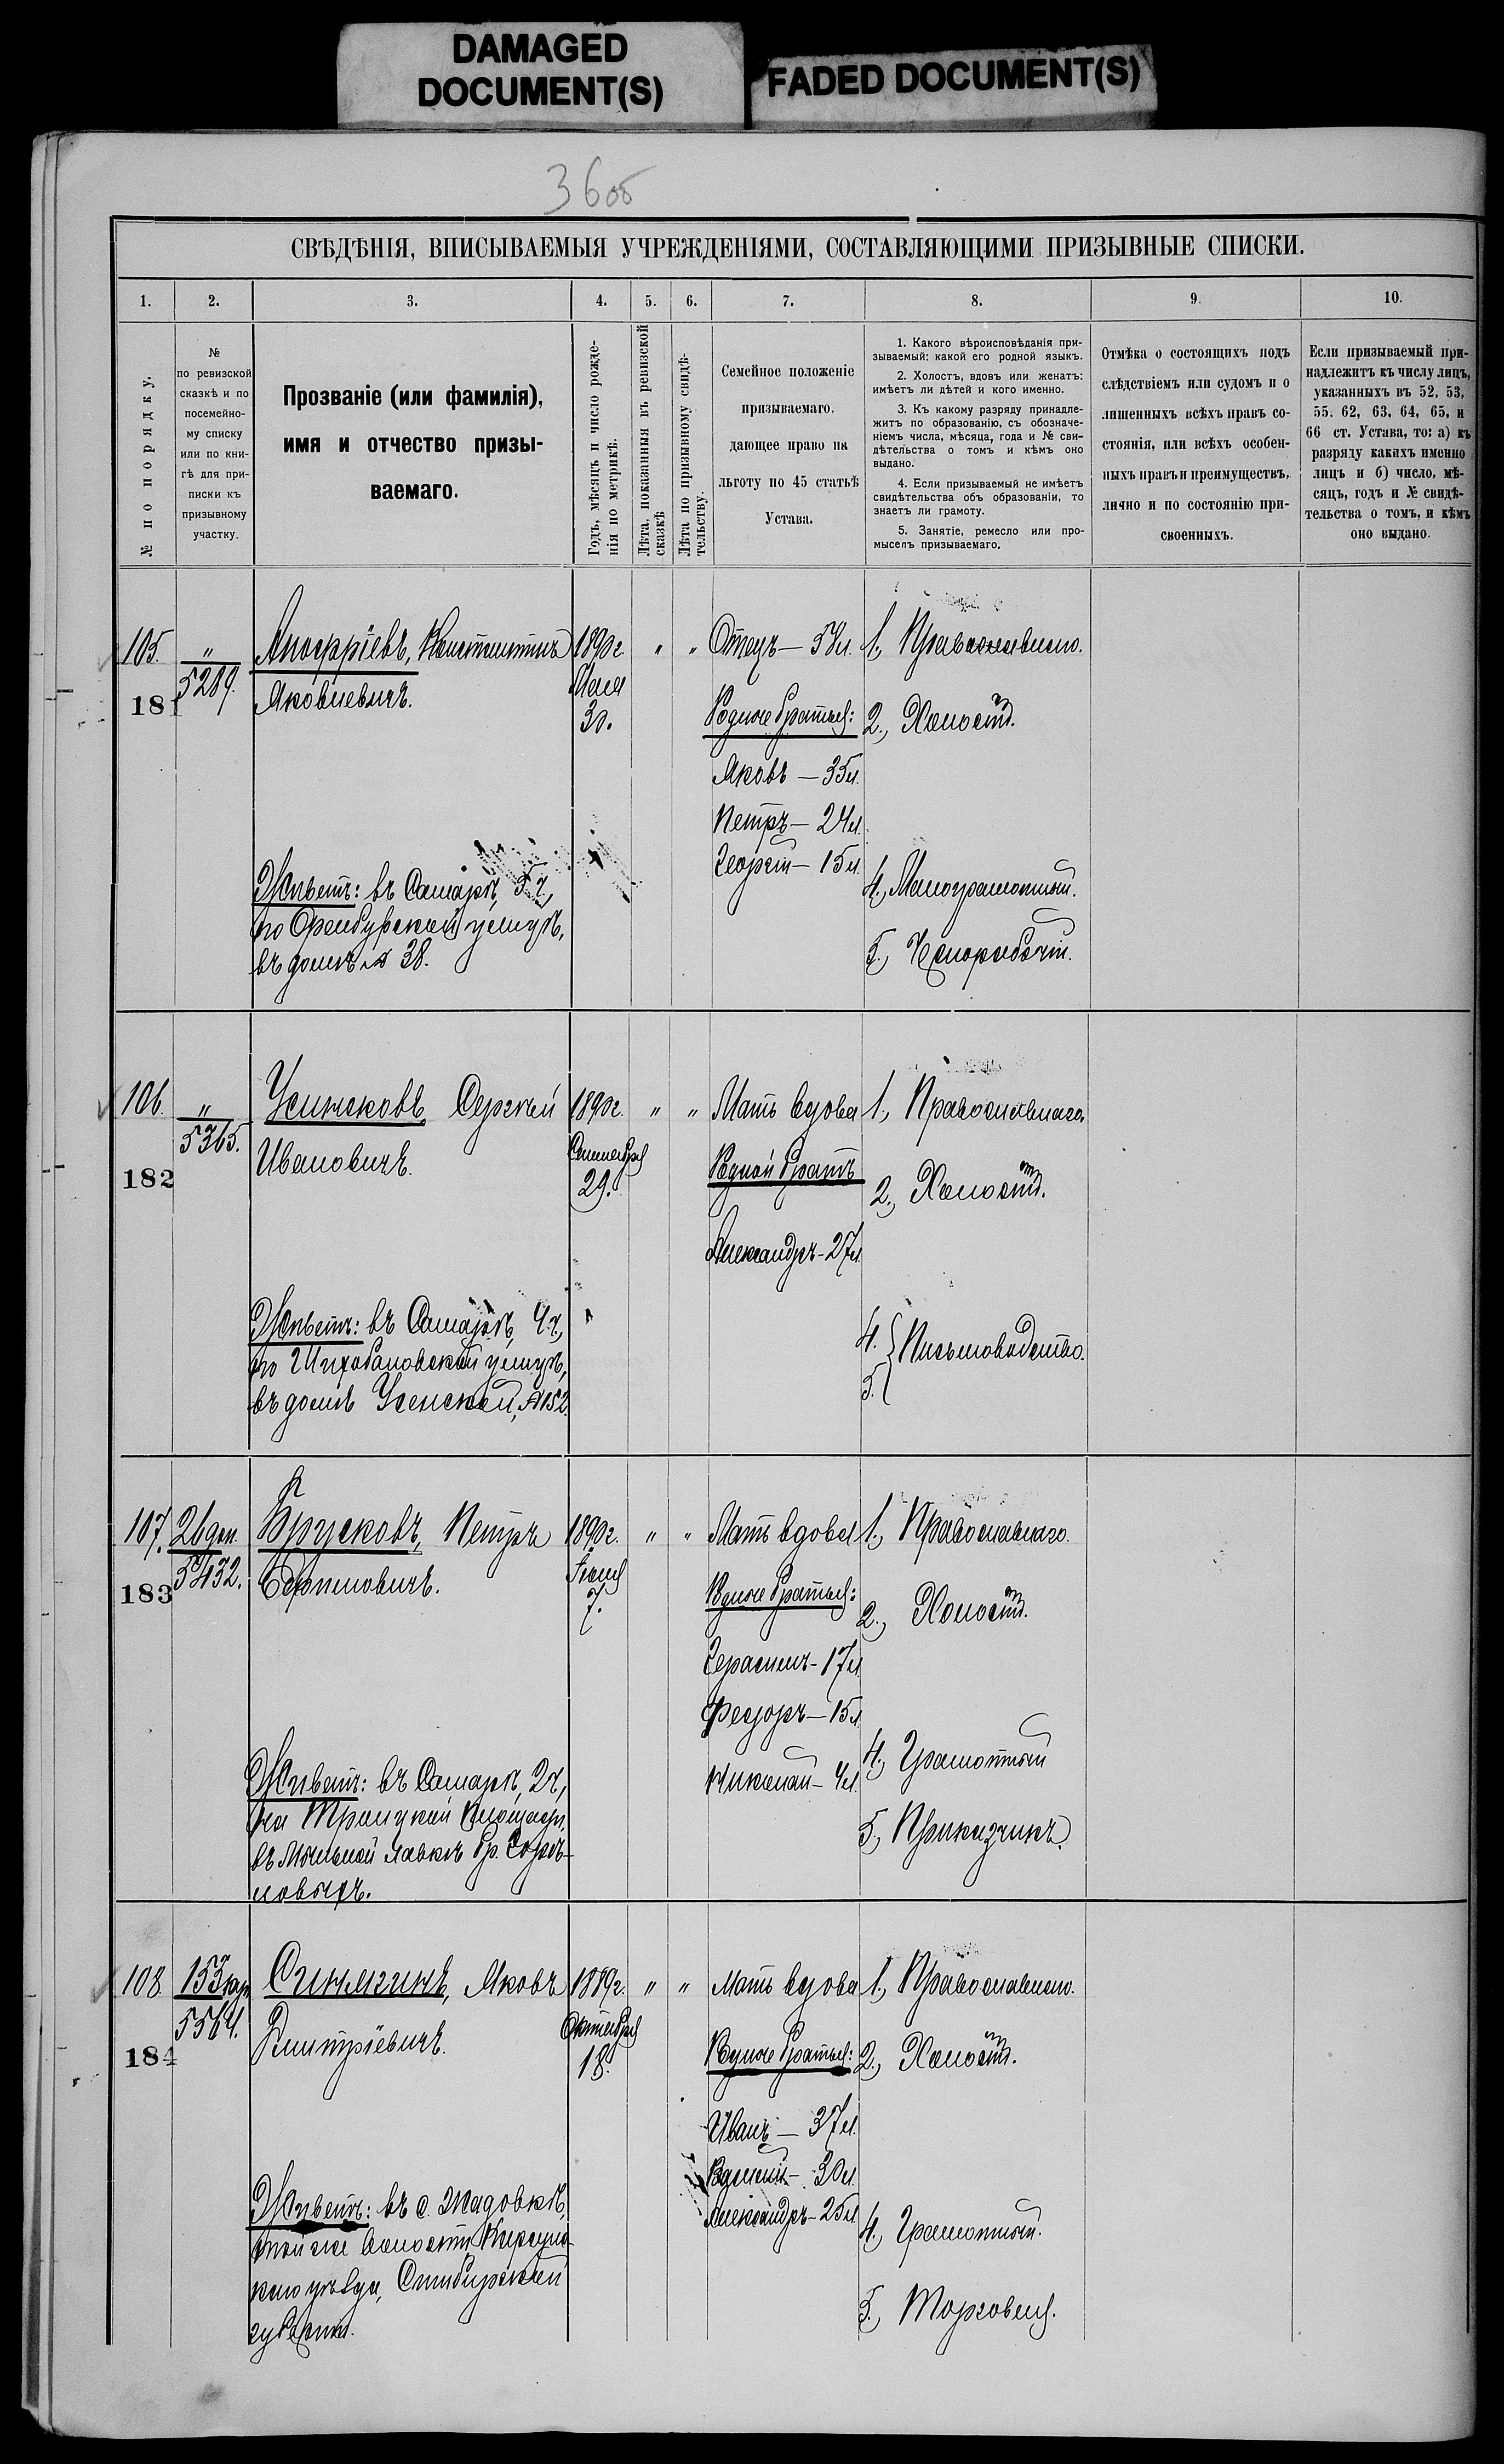 DAMAGED
DOCUMENT(S)
FADED DOCUMENT(S)
36об
СВѢДѢНІЯ, ВПИСЫВАЕМЫЯ УЧРЕЖДЕНІЯМИ, СОСТАВЛЯЮЩИМИ ПРИЗЫВНЫЕ СПИСКИ.
1.
2.
3.
4.
5.
6.
7.
8.
9.
10.
№ по порядку.
№
по ревизской
сказкѣ и по
посемейно-
му списку
или по кни-
гѣ для при-
писки къ
призывному
участку.
Прозваніе (или фамилія),
имя и отчество призы-
ваемаго.
Годъ, мѣсяцъ и число рожде-
нія по метрикѣ.
Лѣта, показанныя въ ревизской
сказкѣ
Лѣта по призывному свидѣ-
тельству.
Семейное положеніе
призываемаго,
дающее право на
льготу по 45 статьѣ
Устава.
1. Какого вѣроисповѣданія при-
зываемый: какой его родной языкъ.
2. Холостъ, вдовъ или женатъ:
имѣетъ ли дѣтей и кого именно.
3. Къ какому разряду принадле-
житъ по образованію, съ обозначе-
ніемъ числа, мѣсяца, года и № сви-
дѣтельства о томъ и кѣмъ оно
выдано.
4. Если призываемый не имѣетъ
свидѣтельства объ образованіи, то
знаетъ ли грамоту.
5. Занятіе, ремесло или про-
мыселъ призываемаго.
Отмѣка о состоящихъ подъ
слѣдствіемъ или судомъ и о
лишенныхъ всѣхъ правъ со-
стоянія, или всѣхъ особен-
ныхъ правъ и преимуществъ,
лично и по состоянію при-
своенныхъ.
Если призываемый при-
надлежитъ къ числу лицъ,
указанныхъ въ 52, 53,
55. 62, 63, 64, 65, и
66 ст. Устава, то: а) къ
разряду какихъ именно
лицъ и б) число, мѣ-
сяцъ, годъ и № свидѣ-
тельства о томъ, и кѣмъ
оно выдано.
105.
181
"
5289.
Константинъ
Яковлевичъ.
Живетъ: въ Самарѣ, 5 ч,
по Оренбургской улицѣ,
въ домѣ № 38.
1890 г.
Мая
30.
"
"
Отецъ — 58 л.
Родные братья:
Яковъ — 35 л.
Петръ — 24 л.
Георгій — 15 л.
1., Православнаго.
2., Холостъ.
4., Малограмотный.
5., Чернорабочій.
106.
182
"
5365.
Сергѣй
Ивановичъ.
Живетъ: въ Самарѣ, 4 ч.,
по Шихобаловской улицѣ,
въ домѣ Усенской, № 152.
1890 г.
Сентября
29.
"
"
Мать вдова
Родной братъ
Александръ - 27 л.
1., Православнаго.
2., Холостъ.
4.
5.
Письмоводство.
107.
183
5432.
Брусковъ, Петръ
Живетъ: въ Самарѣ, 2 ч,
на Троицкой площади,
въ Мыльной лавкѣ бр.
новыхъ.
1890 г.
7.
"
"
Мать вдова
Родные братья:
Герасимъ - 17 л.
Федоръ — 15 л.
Николай — 4 л.
1., Православнаго.
2., Холостъ.
4., Грамотный
5., Приказчикъ.
108.
184
5564.
Синягинъ, Яковъ
Дмитріевичъ.
Живетъ: въ с. Жадовкѣ,
той же волости, Карсун-
скаго уѣзда, Симбирской
губерніи.
1889 г.
Октября
18.
"
"
Мать вдова
Родные братья:
Иванъ — 37 л.
Василій — 30 л.
Александръ - 25 л.
1., Православнаго.
2., Холостъ.
4., Грамотный.
5., Торговля.